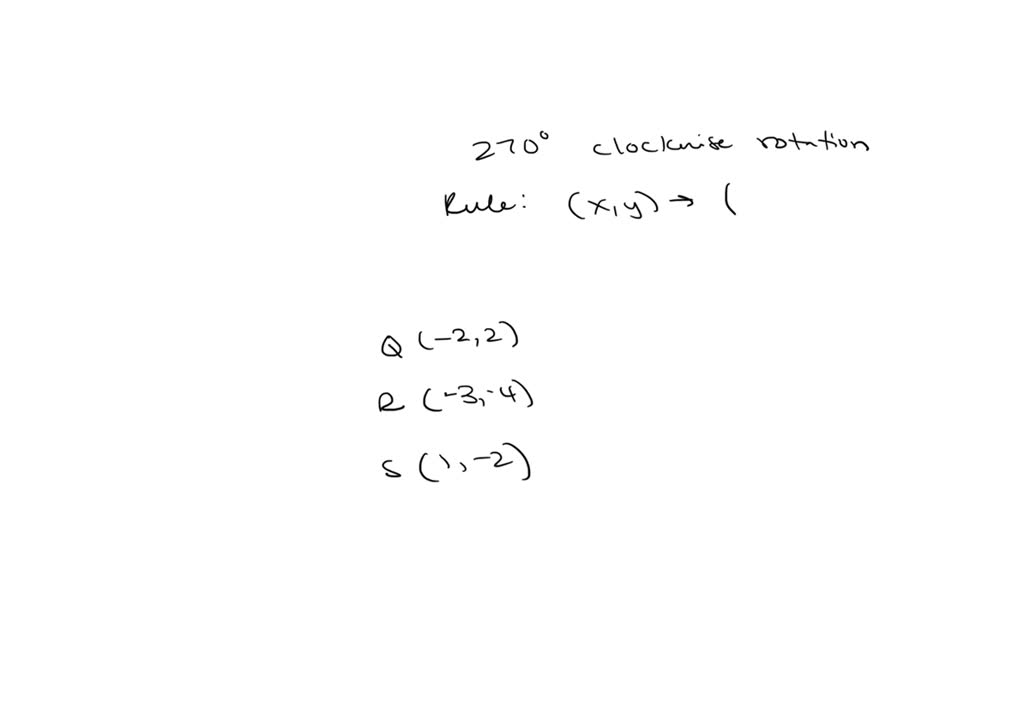 270° clockwise rotation
Rule: (x,y) → (
Q (-2,2)
R (-3,-4)
S (1,-2)